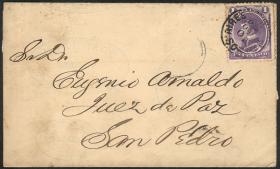 Sr. Dn.
Eugenio Arnaldo
Juez de Paz
San Pedro